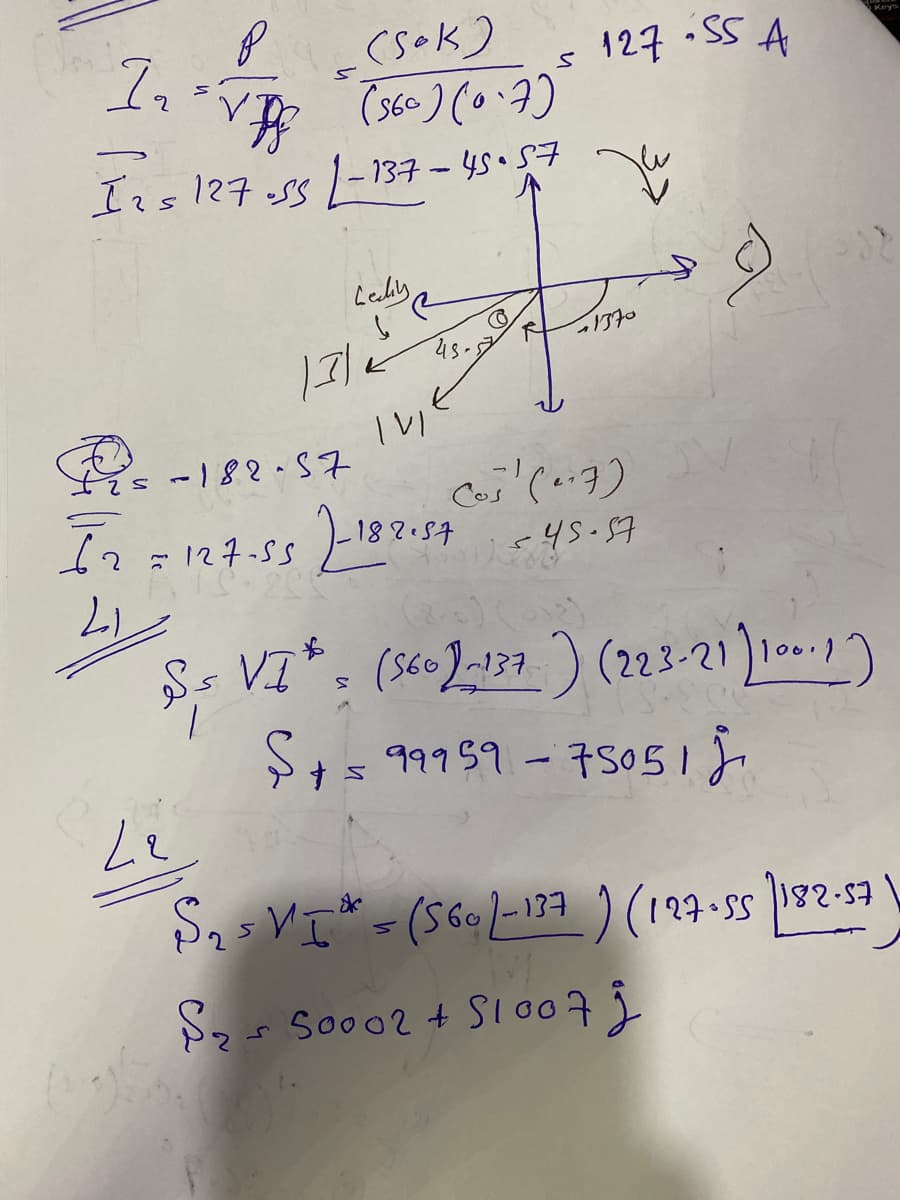 I₂ = P / (V Pf) = (50K) / (560)(0.7) = 127.55 A
I₂ = 127.55 ∠-137-45.57
|I|
45.57
θ
-137°
|V|
I₂ = -182.57
cos⁻¹(0.7)
I₂ = 127.55 ∠-182.57
= 45.57
L1
S₁ = VI* = (560∠-137)(223.21∠100.1)
S₁ = 99959 - 75051j
L2
S₂ = VI* = (560∠-137)(127.55∠182.57)
S₂ = 50002 + 51007j